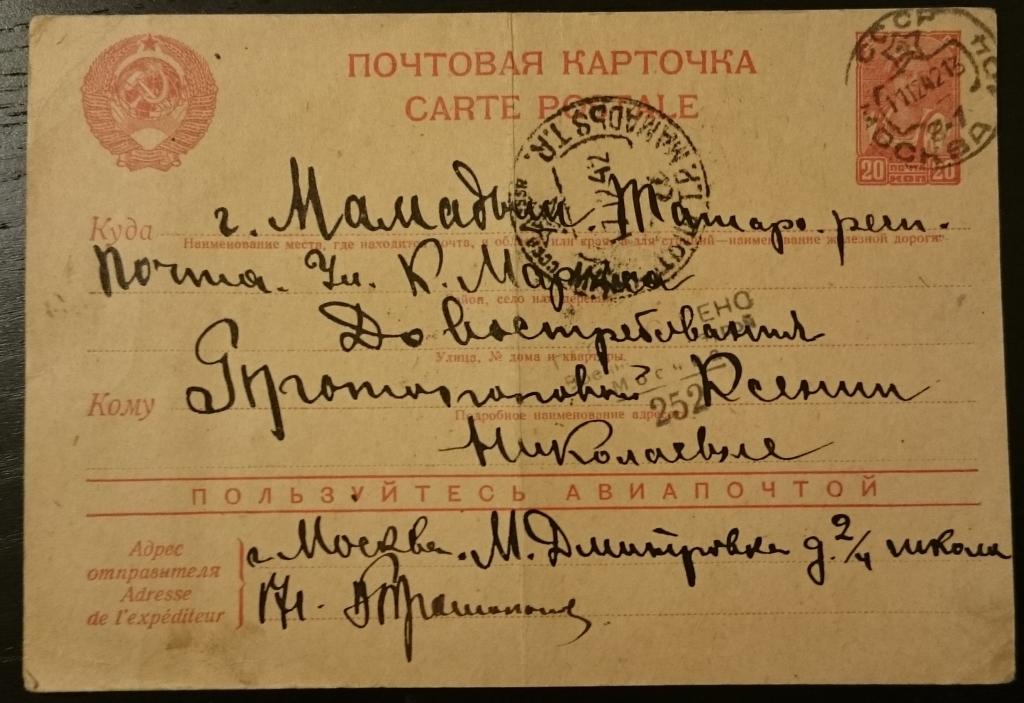 ПОЧТОВАЯ КАРТОЧКА
CARTE POSTALE
СССР МОСКВА
20 ПОЧТА КОП 20
Куда г. Мамадыш. Татар. респ.
Наименование места, где находится почта, и области или края, а для станций—наименование железной дороги.
Почта. Ул. К. Маркса
Район, село или деревня
До Востребования
Улица, № дома и квартиры.
Кому Протопоповой Ксении
Подробное наименование адресата
Николаевне
Москва
252
ПОЛЬЗУЙТЕСЬ АВИАПОЧТОЙ
Адрес отправителя
Adresse de l'expéditeur
г. Москва. М. Дмитровка д. 2/4 школа
171.